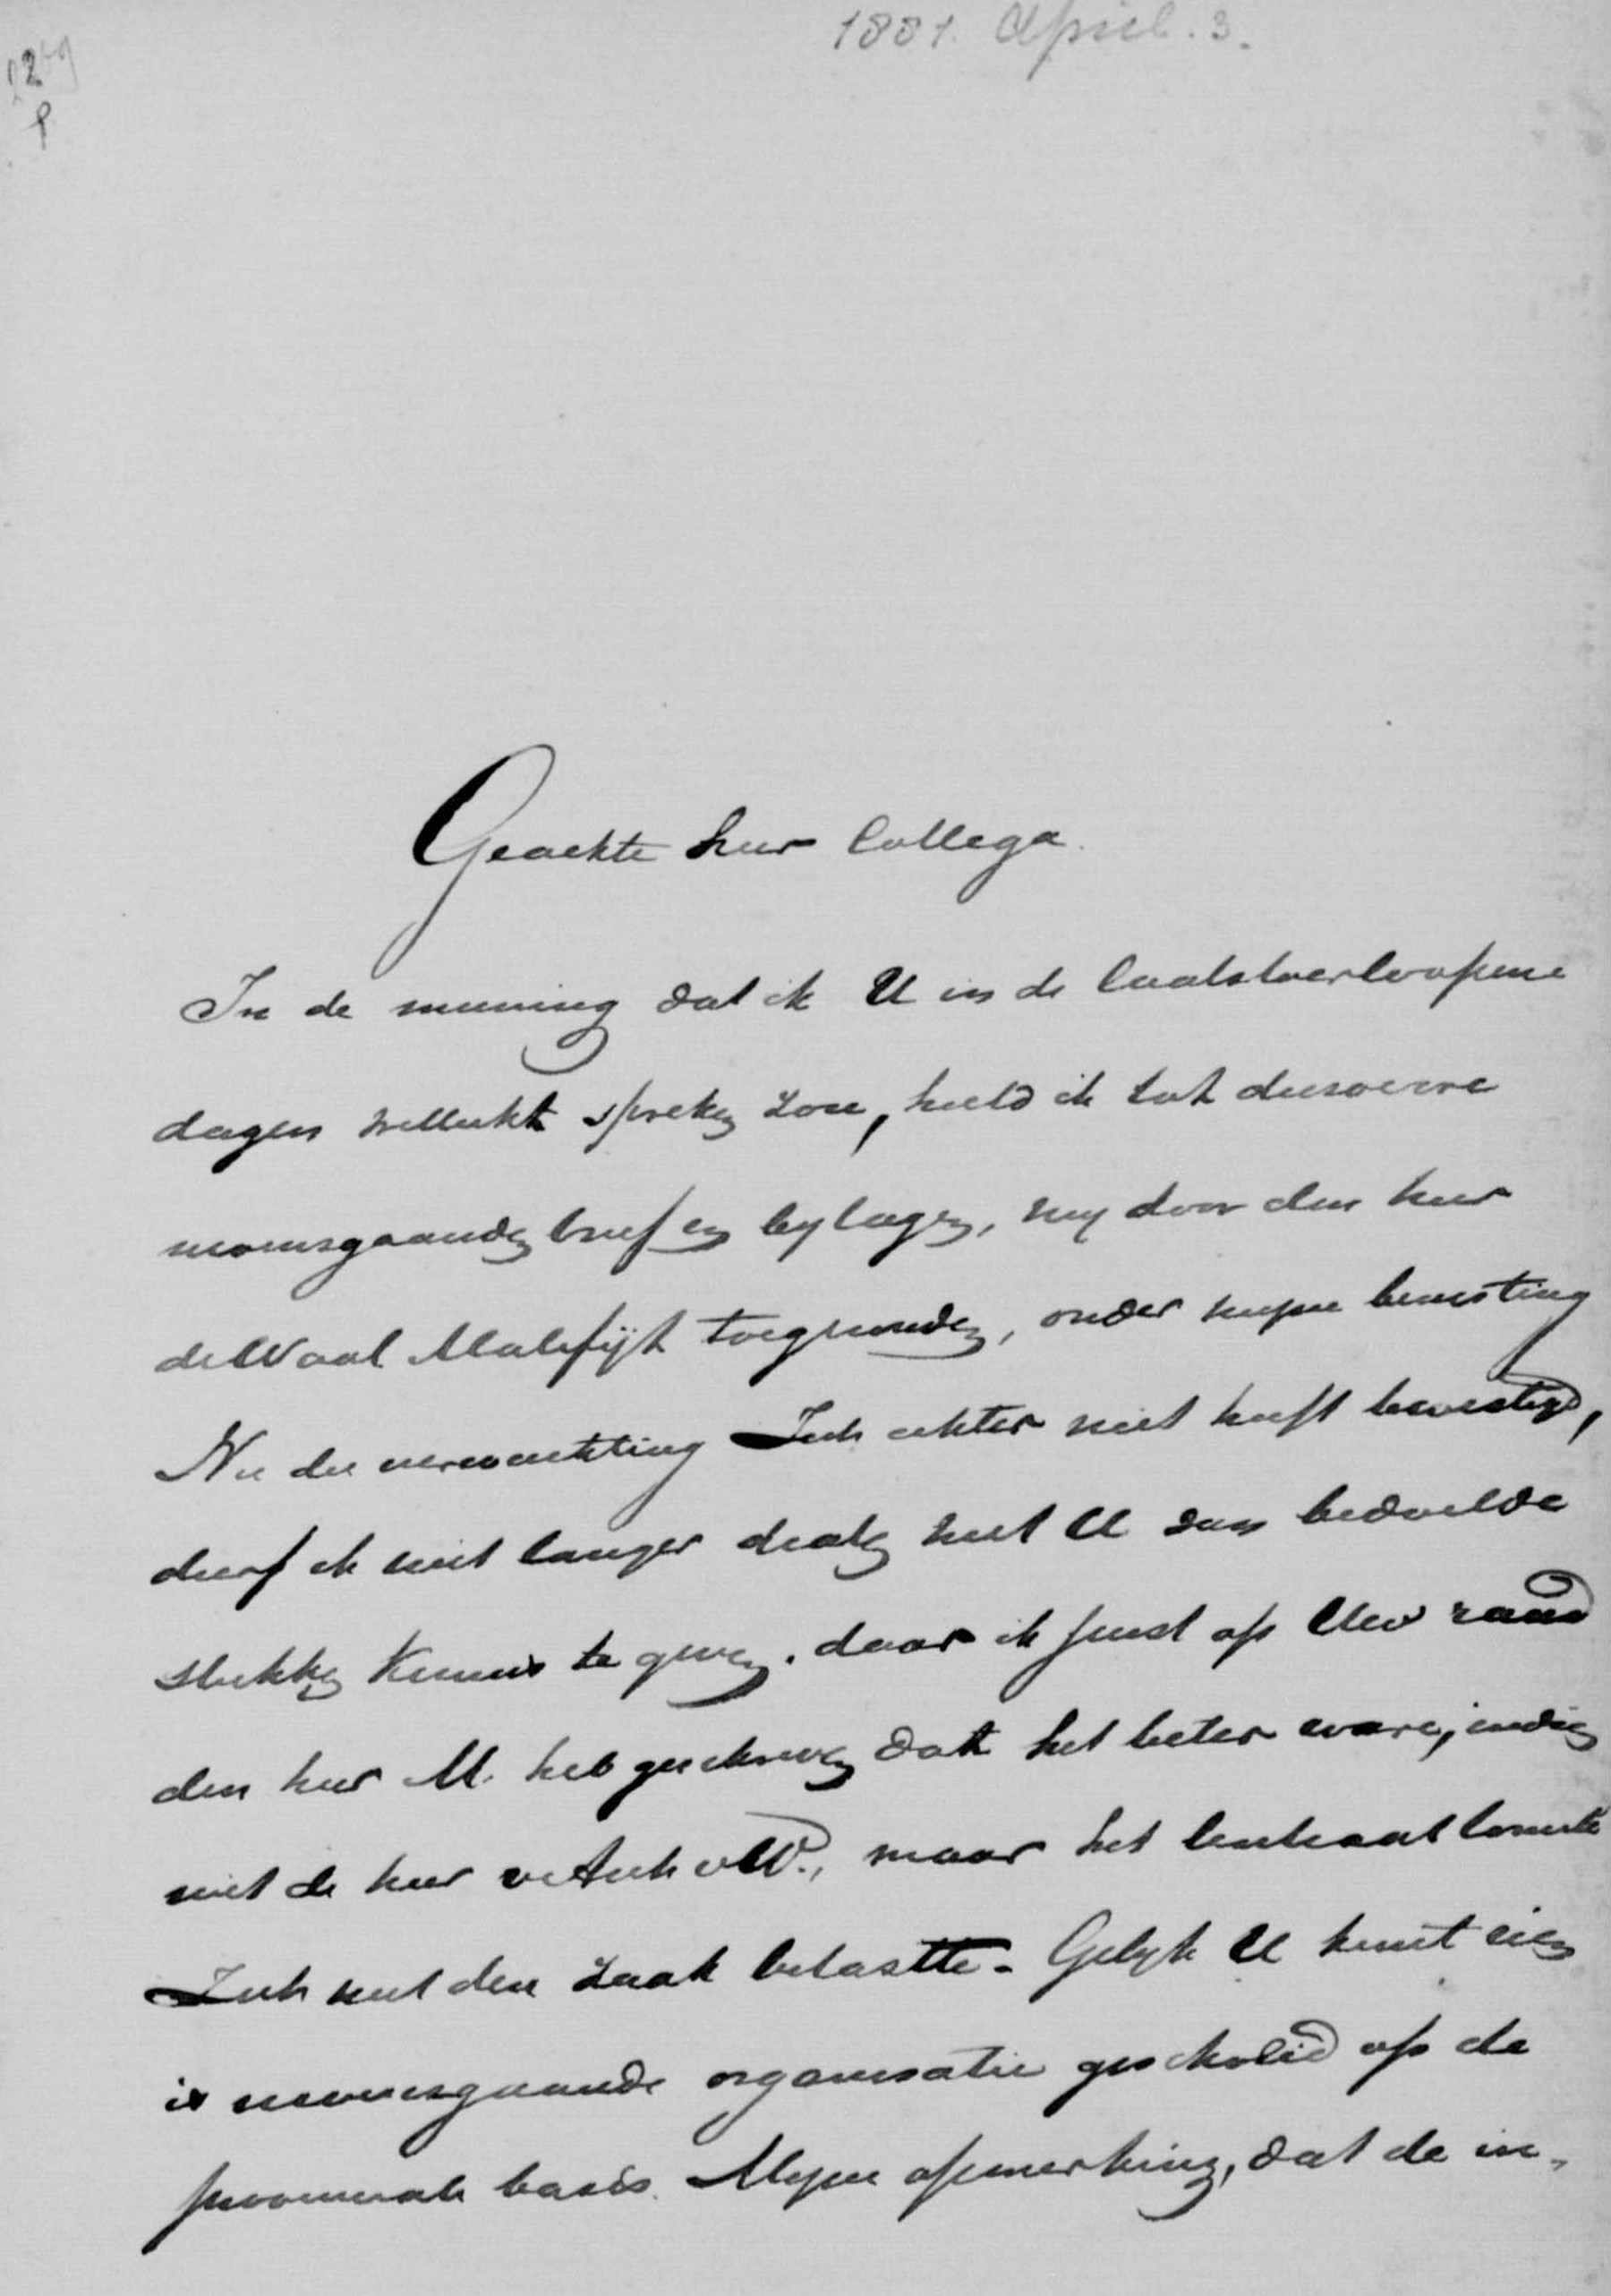 1881. April. 3.
Geachte heer Collega.
In de meening dat ik U in de laatstverloopene
dagen wellicht spreken zou, hield ik tot dusverre
nevensgaanden brief en bylagen, my door den heer
de Waal Malefijt toegezonden, onder myne berusting
Nu die verwachting zich echter niet heeft bevestigd,
durf ik niet langer dralen met U van bedoelde
stukken kennis te geven. daar ik juist op Uw raad
den heer M. heb geschreven dat het beter ware, indien
niet de heer v. W., maar het Centraal Comite
zich met deze zaak belastte. Gelyk U kunt zien
is nevensgaande organisatie geschoeid op de
provinciale basis. Myne opmerking, dat de in-